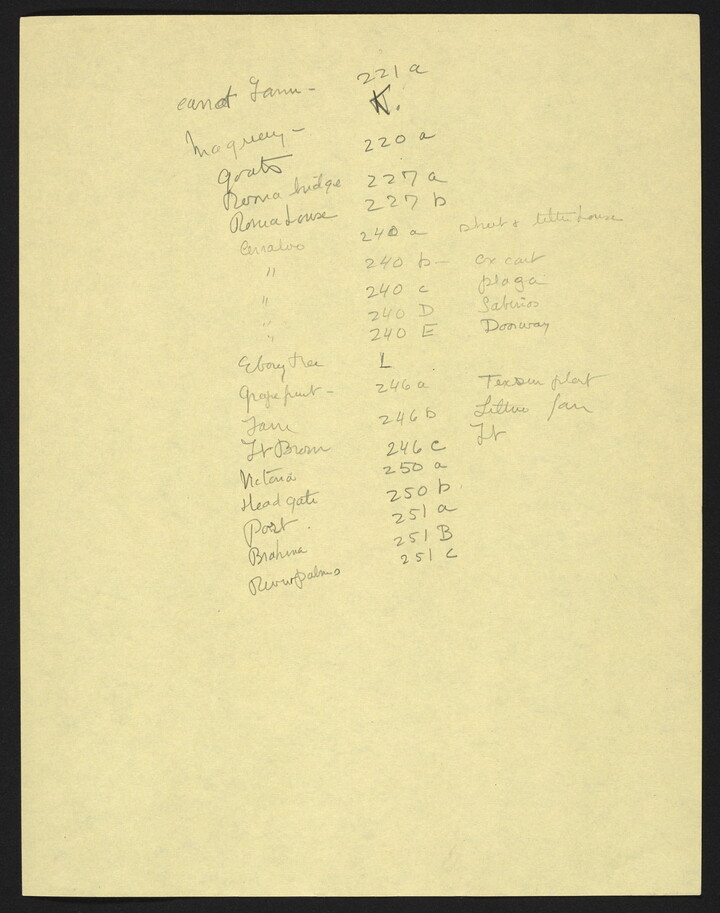 carrot Farm - 221 a
Maguey - K.
goats 220 a
Roma bridge 227 a
Roma House 227 b
Cerralvo 240 a street & little house
" 240 b - ox cart
" 240 c plaza
" 240 D Sabinos
" 240 E Doorway
Ebony tree L
Grapefruit - 246 a Texsun plant
Farm 246 b Little farm
Ft Brown 246 c Ft
Victoria 250 a
Head gate 250 b
Port 251 a
Brahma 251 B
River palms 251 C